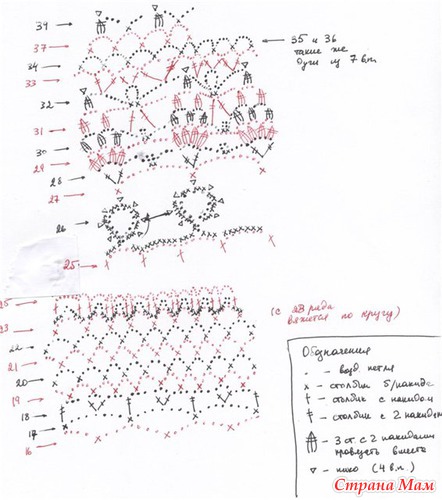 39
37
35 и 36
такие же
дуги из 7 в.п.
34
33
32
31
30
29
28
27
26
25
25
(с
ряда
вяжется по кругу)
23
22
21
20
19
18
17
16
Обозначения
. - возд. петля
x - столбик б/накида
† - столбик с накидом
‡ - столбик с 2 накидами
- 3 ст. с 2 накидами
провязать вместе
▽ - пико (4 в.п.)
Страна Мам